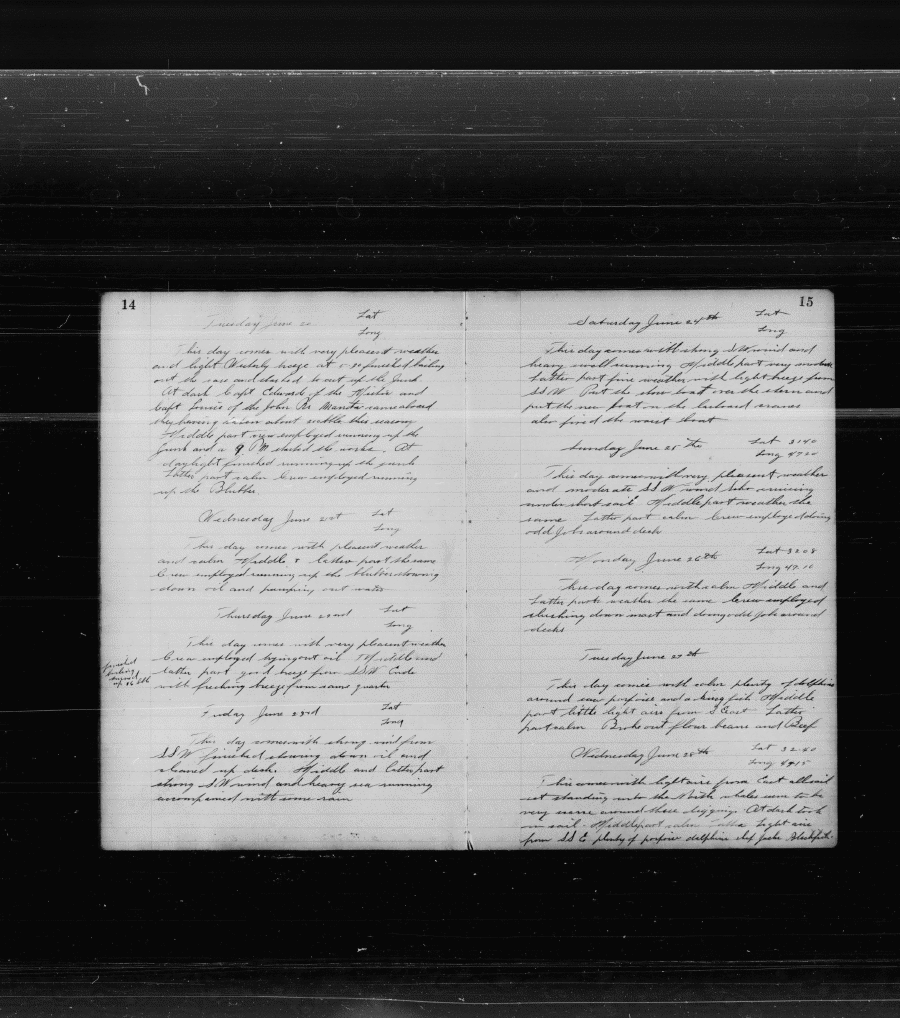 14
Tuesday June 20 Lat
Long
This day comes with very pleasant weather
and light Westerly breeze at finished bailing
out the case and started to cut up the Junk
At dark Capt Edwards of the and
Capt of the John R. Manta came aboard
they having about this season
Middle part crew employed running up the
Junk and a 9 PM started the works. At
daylight finished running up the junk
Latter part calm Crew employed running
up the Blubber.
Wednesday June 21st Lat
Long
This day comes with pleasant weather
and calm Middle & latter part the same
Crew employed running up the blubber stowing
down oil and pumping out water
Thursday June 22nd Lat
Long
This day comes with very pleasant weather
Crew employed trying out oil Middle and
latter part good breeze from SSW Ends
with freshing breeze from same quarter
finished
boiling
turned
up 86 bbl
Friday June 23rd Lat
Long
This day comes with strong wind from
SSW finished stowing down oil and
cleaned up decks. Middle and latter part
strong S.W wind and heavy sea running
accompanied with some rain
15
Saturday June 24th Lat
Long
This day comes with strong SW wind and
heavy swell running Middle part very moderate
Latter part fine weather with light breeze from
SSW Put the stow boat over the stern and
put the new boat on the larboard cranes
also fixed the waist boat
Sunday June 25 The Lat 3140
Long 4720
This day comes with very pleasant weather
and moderate SSW wind Ship cruising
under short sail Middle part weather the
same Latter part calm Crew employed doing
odd Jobs around deck
Monday June 26th Lat 3208
Long 47.10
This day comes with calm Middle and
Latter parts weather the same Crew employed
slushing down mast and doing odd Jobs around
decks
Tuesday June 27th
This day comes with calm plenty of dolphins
around saw porpoises and a king fish Middle
part little light airs from S East Latter
part calm Broke out flour beans and Beef
Wednesday June 28th Lat 32.40
Long 4915
This comes with light airs from East all sail
set standing unto the North whales seem to be
very scarce around these diggings At dark took
in sail Middle part calm Latter Light airs
from SSE plenty of porpoise dolphins skip jacks Blackfish